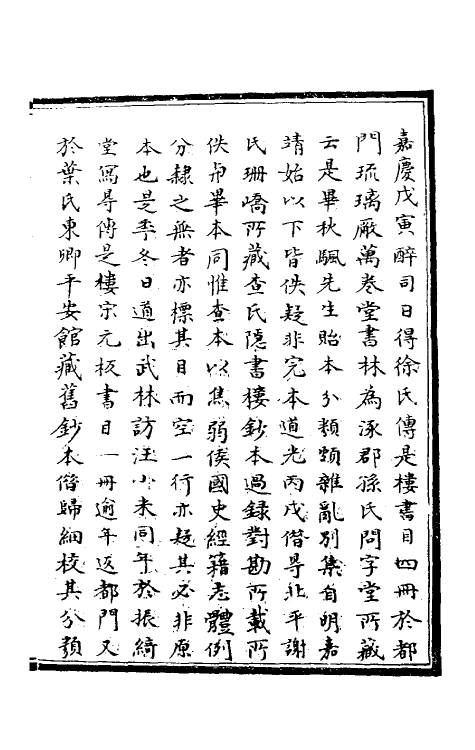 嘉慶戊寅醉司日得徐氏傳是樓書目四冊於都
門琉璃厰萬卷堂書林為涿郡孫氏問字堂所藏
云是畢秋颿先生貽本分類頗雜亂別集自明嘉
靖始以下皆佚疑非完本道光丙戌借得北平謝
氏珊嶠所藏查氏隱書樓鈔本過錄對勘所載所
佚与畢本同惟查本以焦弱侯國史經籍志體例
分隸之無者亦標其目而空一行亦疑其必非原
本也是年冬日道出武林訪汪小米同年於振綺
堂寫得傳是樓宋元板書目一冊逾年返都門又
於葉氏東卿平安館藏舊鈔本借歸細校其分類